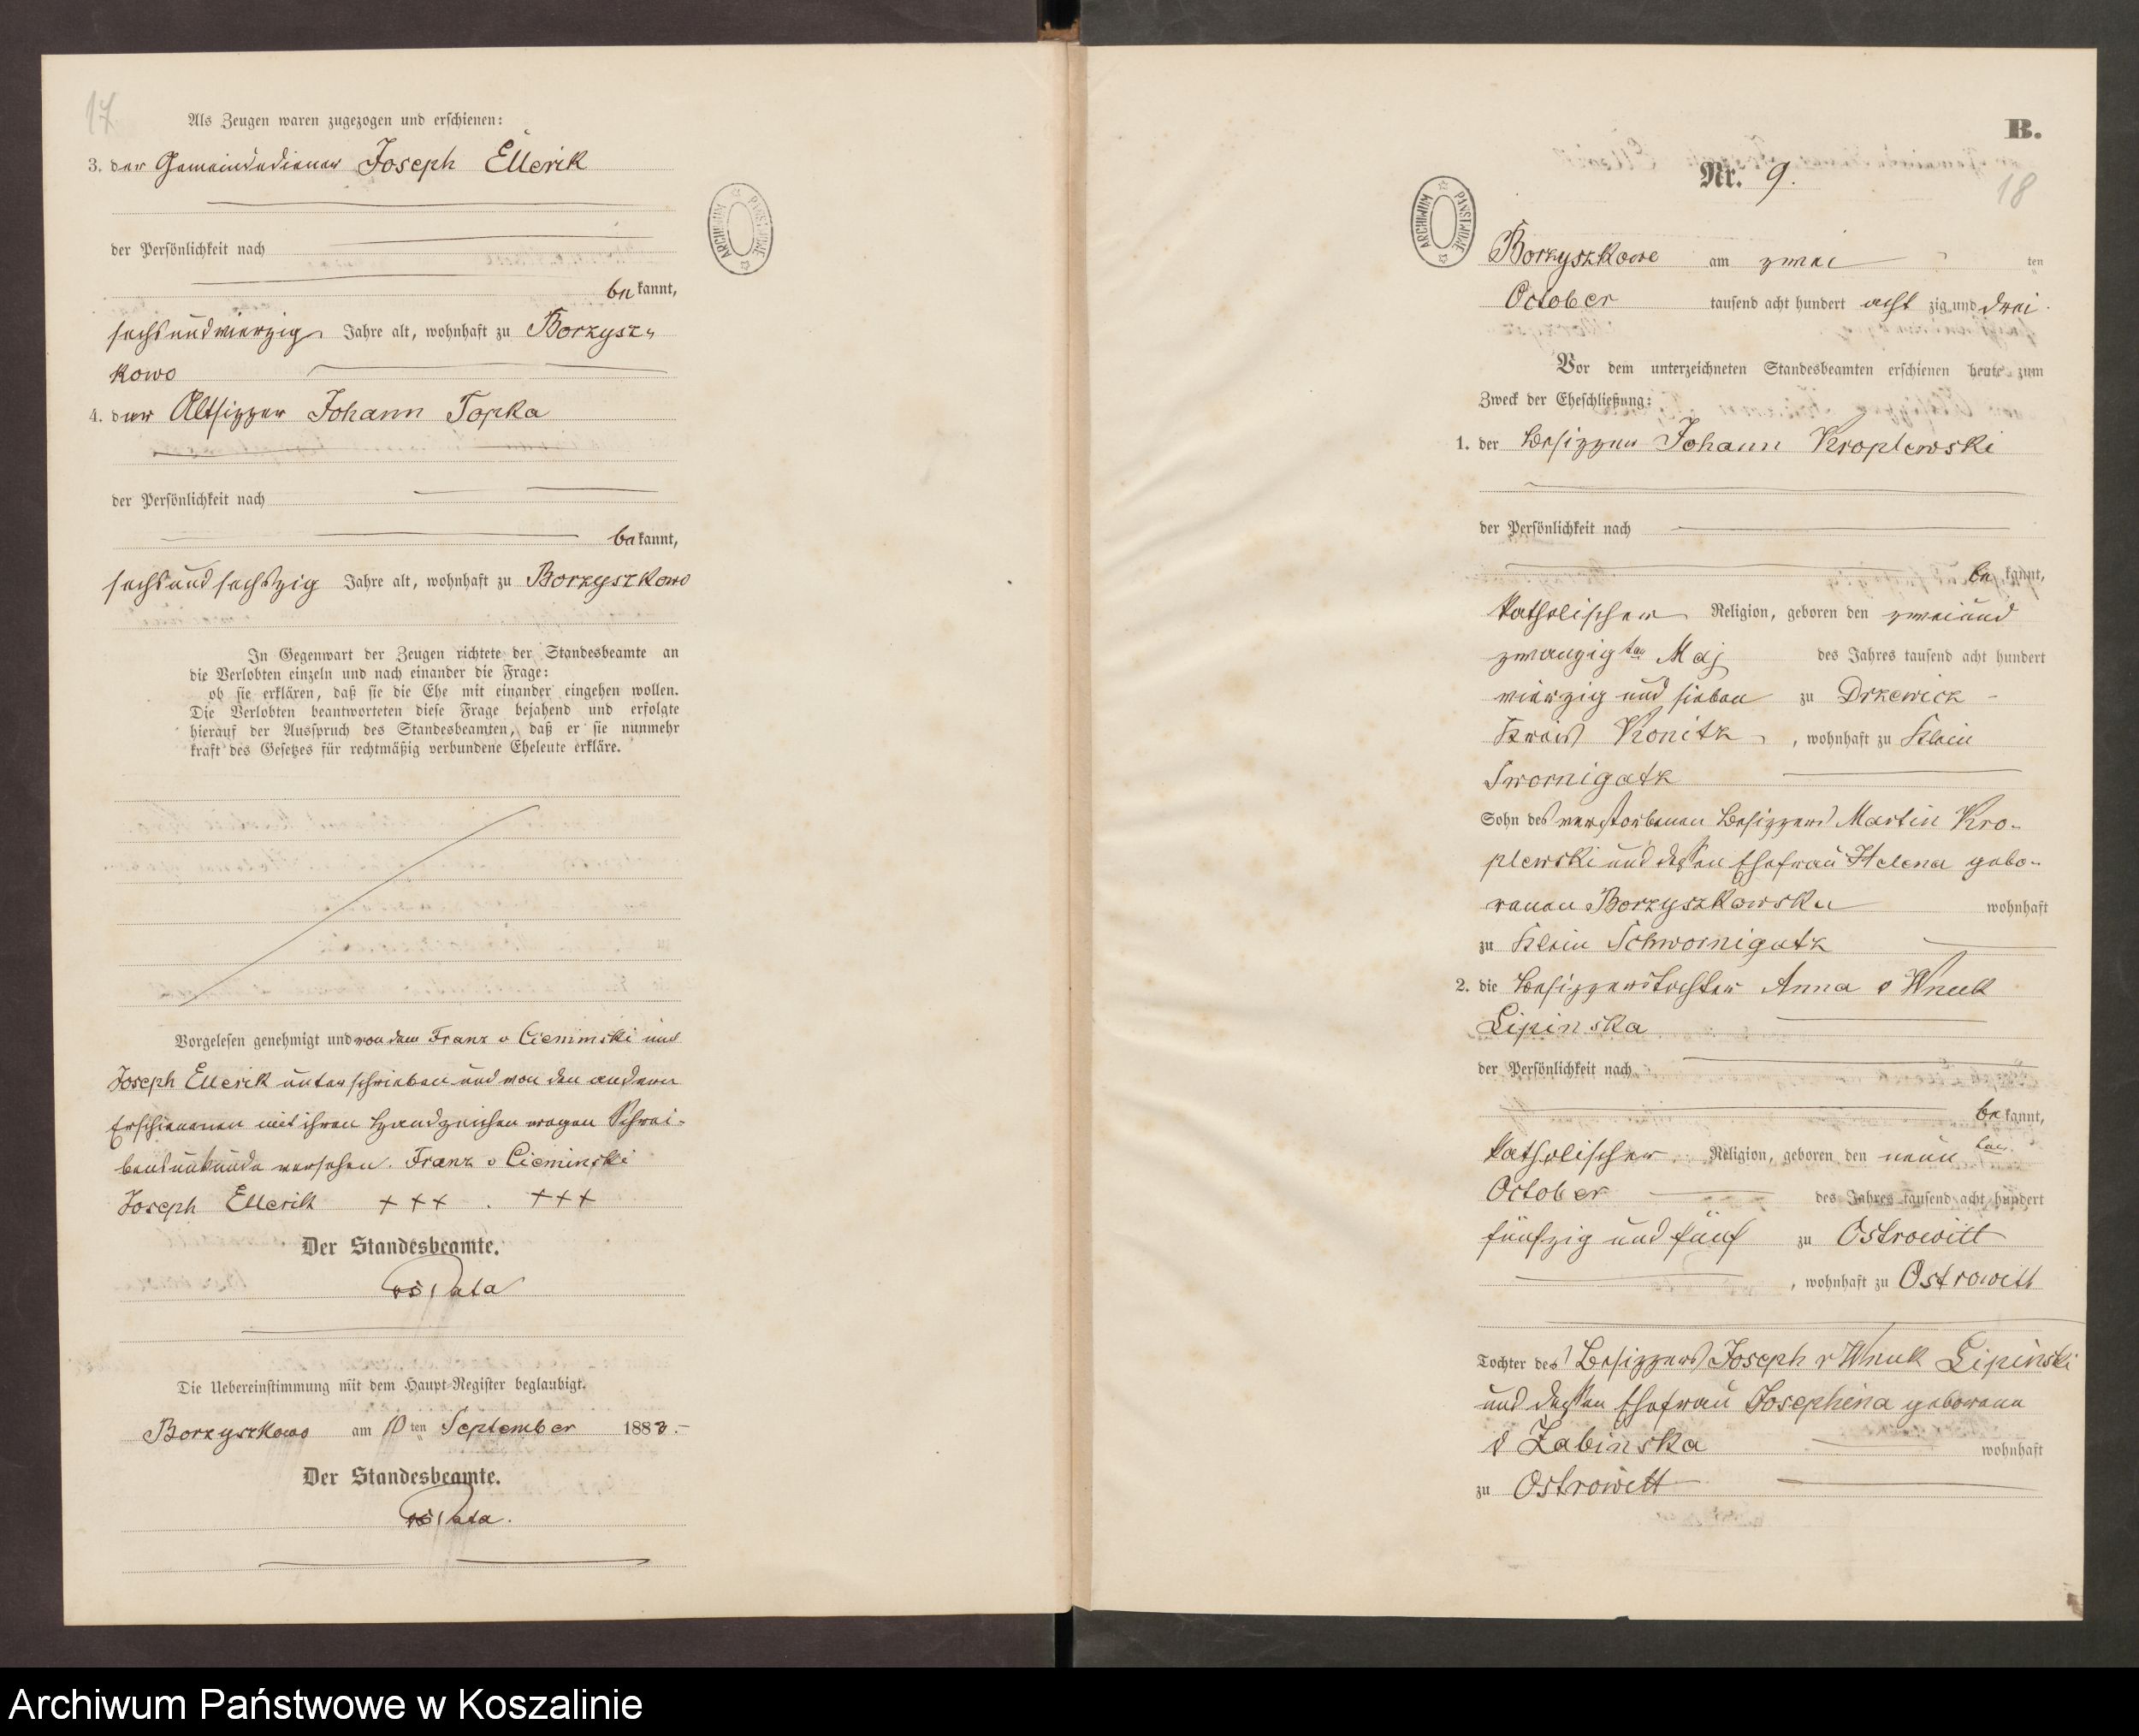 17
Als Zeugen waren zugezogen und erschienen:
3. der Gemeindediener Joseph Ellerik
der Persönlichkeit nach
be kannt,
sechsundvierzig Jahre alt, wohnhaft zu Borzysz-
kowo
4. der Altsitzer Johann Topka
der Persönlichkeit nach
be kannt,
sechsundsechszig Jahre alt, wohnhaft zu Borzyszkowo
In Gegenwart der Zeugen richtete der Standesbeamte an
die Verlobten einzeln und nach einander die Frage:
ob sie erklären, daß sie die Ehe mit einander eingehen wollen.
Die Verlobten beantworteten diese Frage bejahend und erfolgte
hierauf der Ausspruch des Standesbeamten, daß er sie nunmehr
kraft des Gesetzes für rechtmäßig verbundene Eheleute erkläre.
Vorgelesen genehmigt und von dem Franz v Cieminski und
Joseph Ellerik unterschrieben und von den andern
Erschienenen mit ihren Handzeichen wegen Schrei-
bensunkunde versehen. Franz v Cieminski
Joseph Ellerik +++ . +++
Der Standesbeamte.
Pata
Die Uebereinstimmung mit dem Haupt-Register beglaubigt.
Borzyszkowo am 10 ten September 1883.-
Der Standesbeamte.
Pata.
ARCHIWUM PAŃSTWOWE
B.
Nr. 9.
18
ARCHIWUM PAŃSTWOWE
Borzyszkowo am zwei ten
October tausend acht hundert acht zig und drei
Vor dem unterzeichneten Standesbeamten erschienen heute zum
Zweck der Eheschließung:
1. der Besitzer Johann Kroplewski
der Persönlichkeit nach
be kannt,
katholischer Religion, geboren den zweiund
zwanzigten Maj des Jahres tausend acht hundert
vierzig und sieben zu Drzewicz
Kreis Konitz, wohnhaft zu Klein
Swornigatz
Sohn des verstorbenen Besitzers Martin Kro-
plewski und dessen Ehefrau Helena gebo-
renen Borzyszkowska wohnhaft
zu Klein Schwornigatz
2. die Besitzerstochter Anna v Wnuk
Lipinska
der Persönlichkeit nach
be kannt,
katholischer Religion, geboren den neun ten
October des Jahres tausend acht hundert
fünfzig und fünf zu Ostrowitt
, wohnhaft zu Ostrowitt
Tochter des Besitzers Joseph v Wnuk Lipinski
und dessen Ehefrau Josephina geborene
v Zabinska wohnhaft
zu Ostrowitt
Archiwum Państwowe w Koszalinie